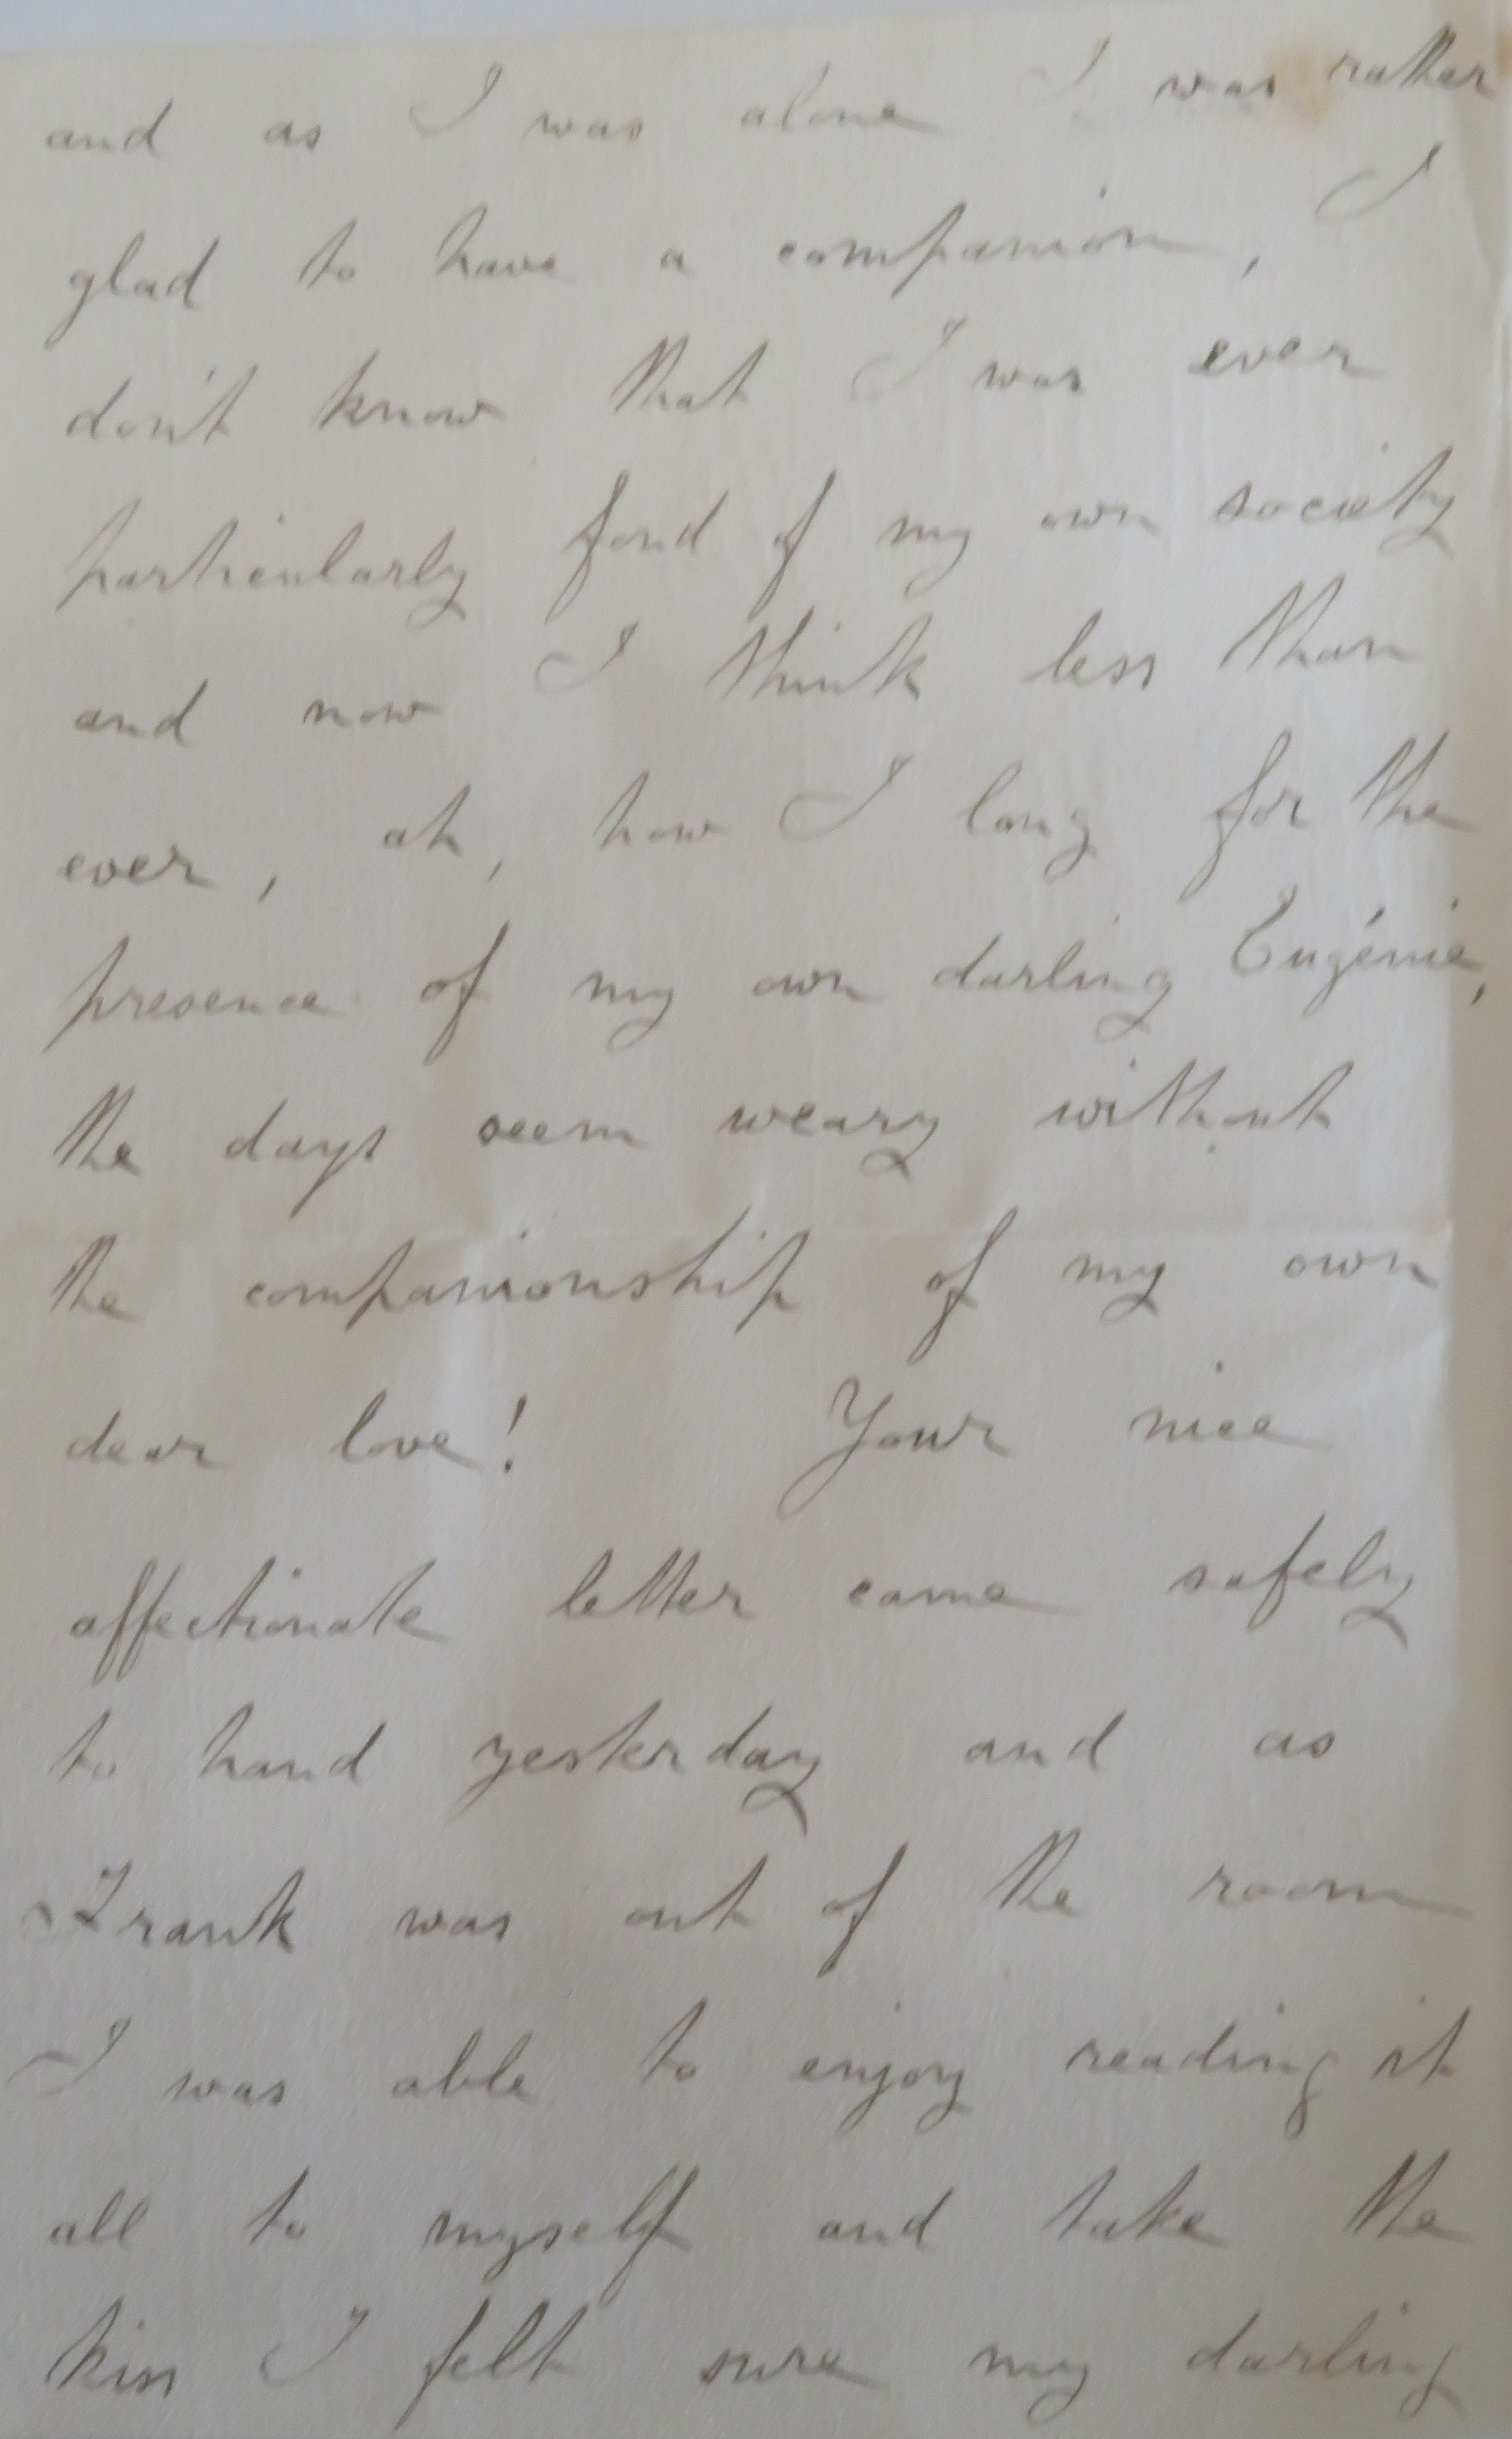 and as I was alone I was rather
glad to have a companion, I
don't know that I was ever
particularly fond of my own society
and now I think less than
ever, ah, how I long for the
presence of my own darling Eugénie,
the days seem weary without
the companionship of my own
dear love! Your nice
affectionate letter came safely
to hand yesterday and as
Frank was out of the room
I was able to enjoy reading it
all to myself and take the
kiss I felt sure my darling